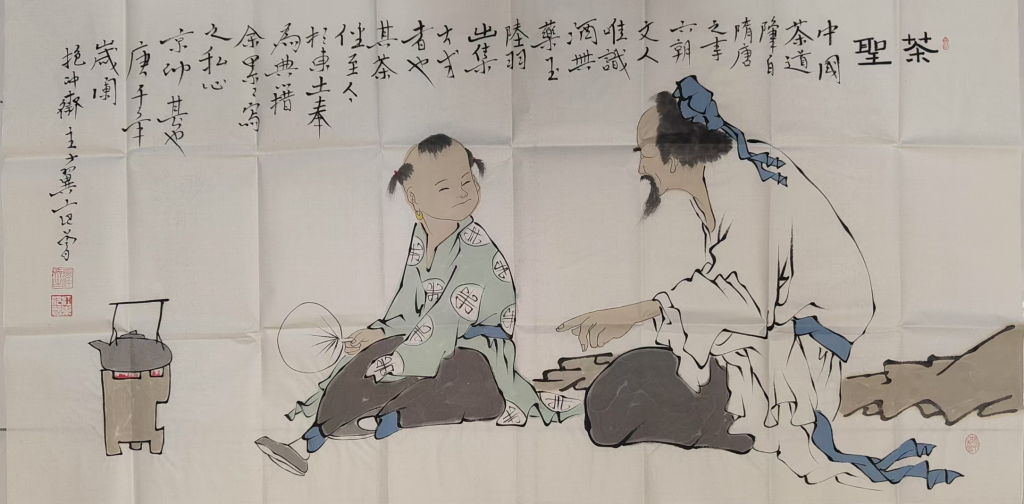 茶聖
中國
茶道
隆自
隋唐
之事
六朝
文人
唯識
酒與
藥玉
陸羽
出集
大成
者也
其茶
至今
於東土奉
為典籍
余寫
之私心
京仰其也
庚子年
歲闌
抱冲齋主